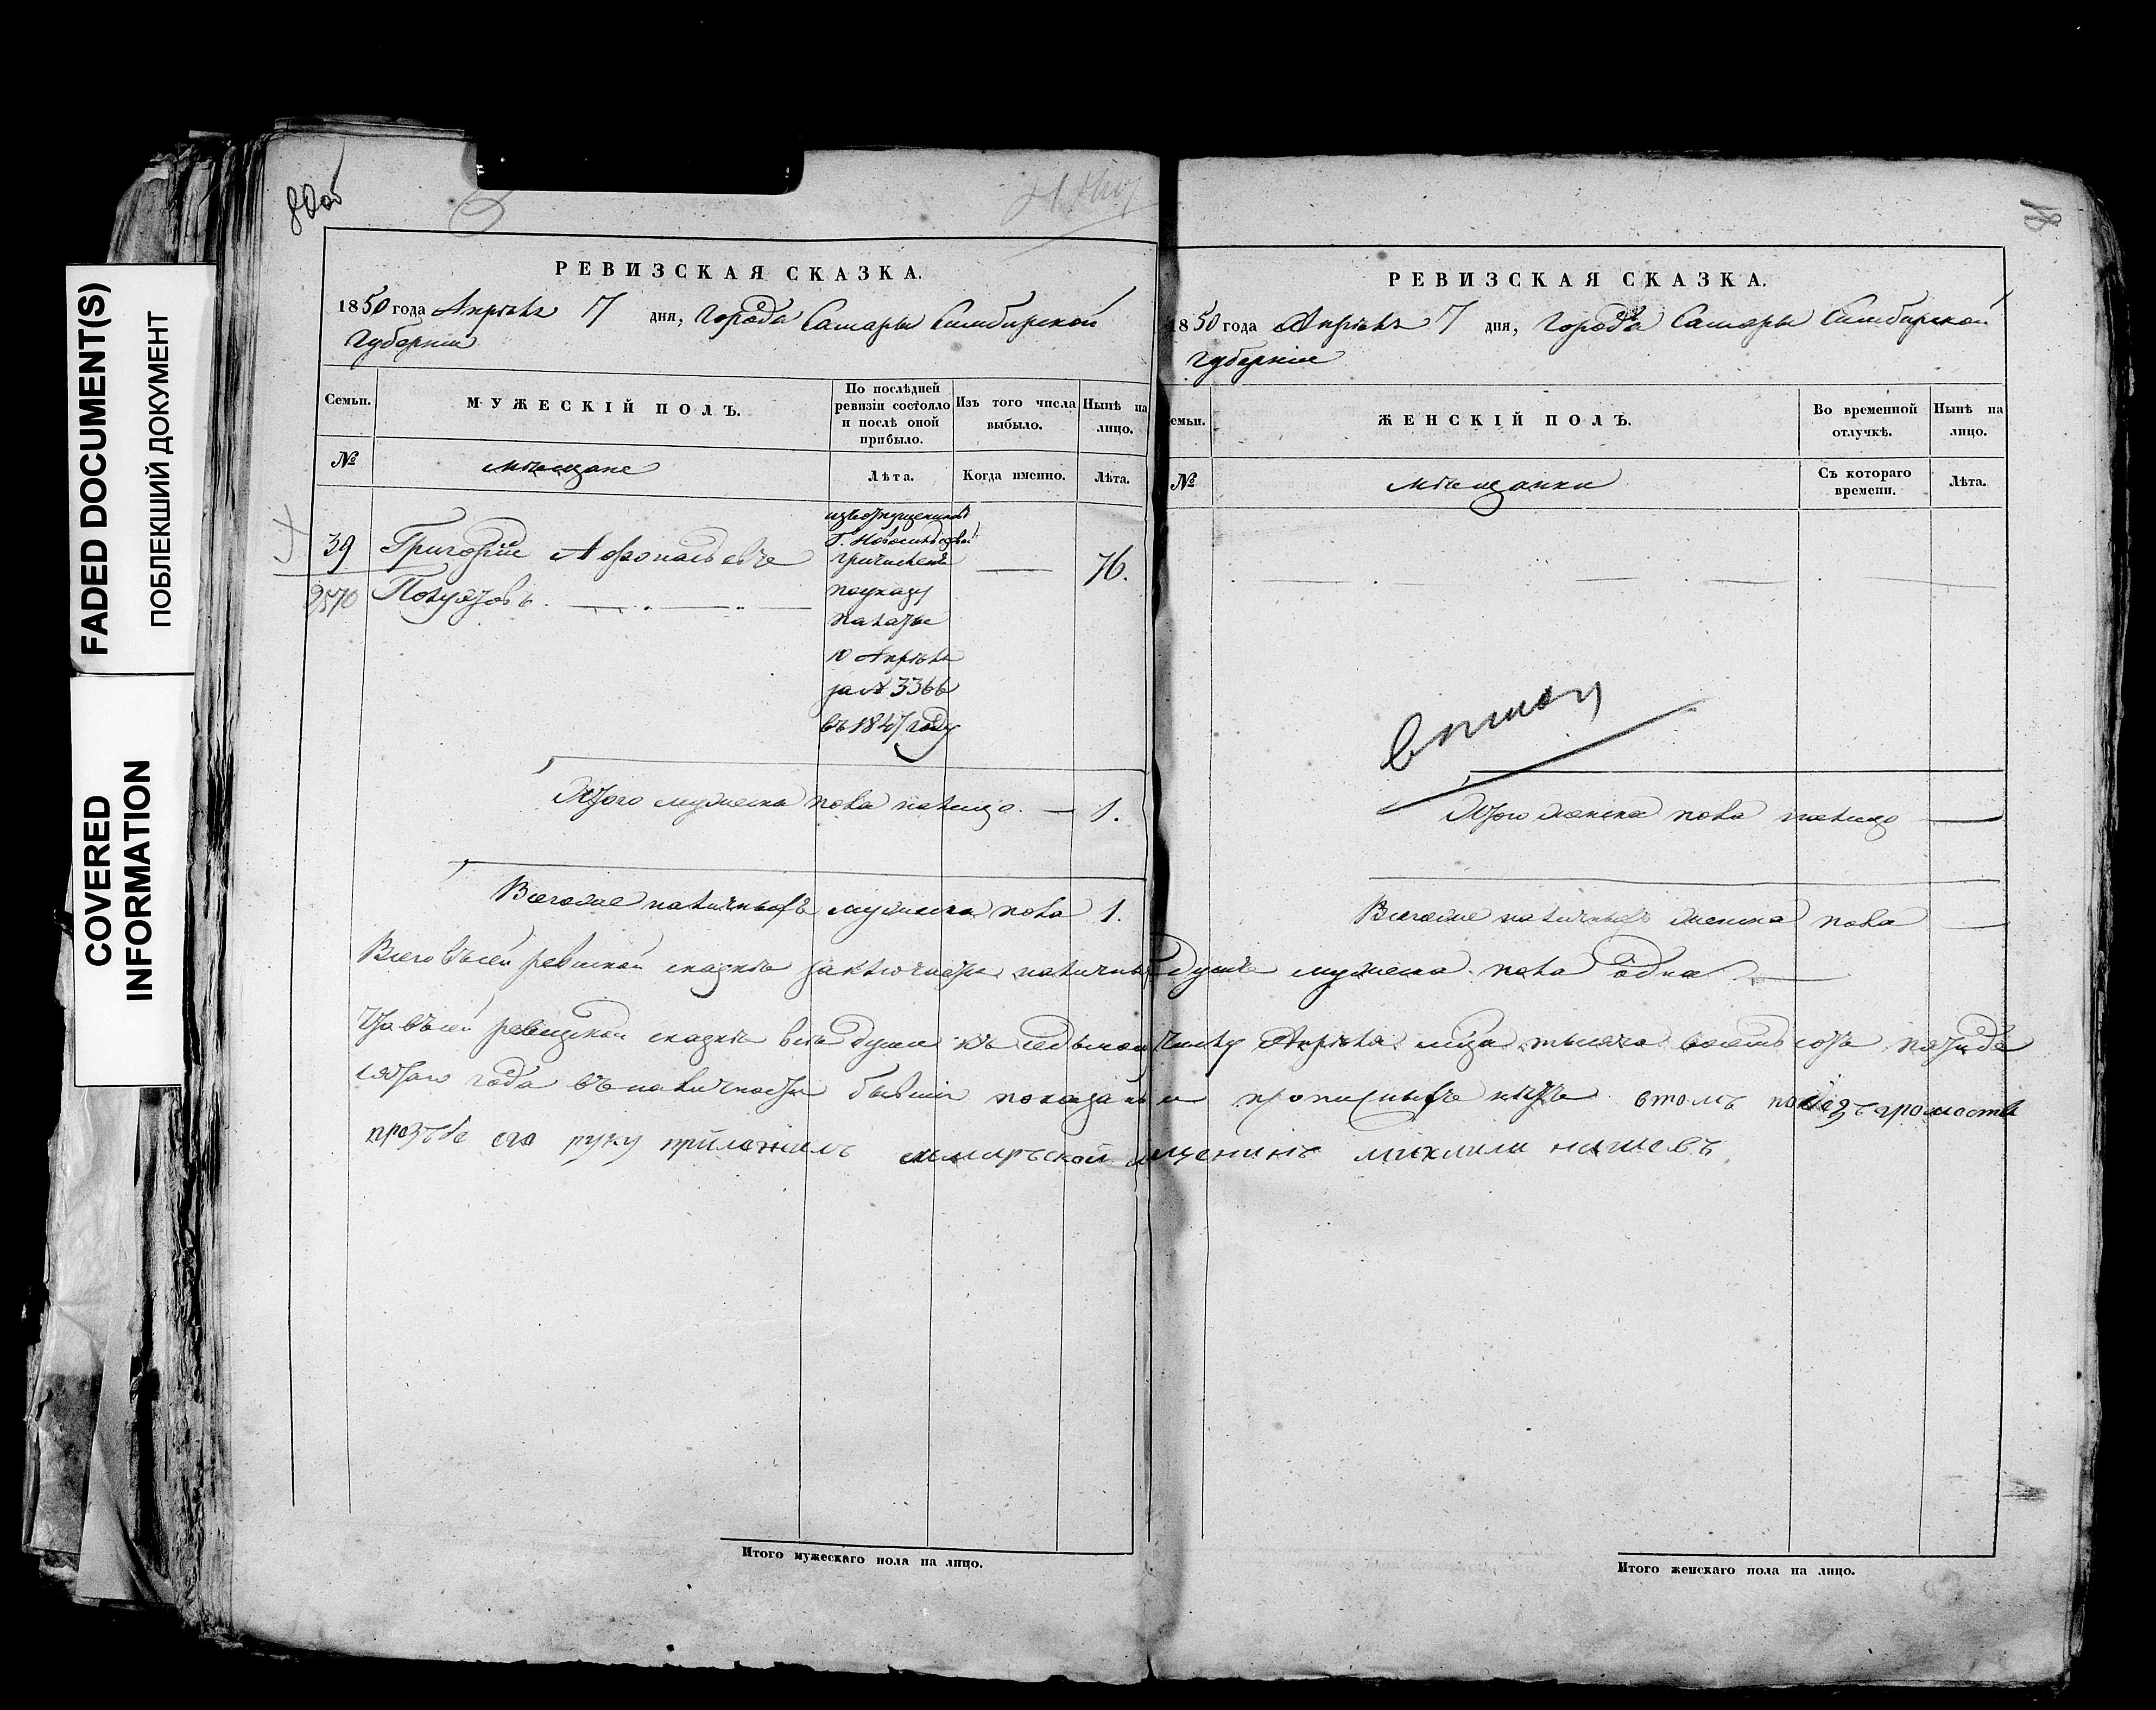 FADED DOCUMENT(S)
ПОБЛЕКШИЙ ДОКУМЕНТ
COVERED
INFORMATION
80об
РЕВИЗСКАЯ СКАЗКА.
1850 года Апрѣля 7 дня, города Самары Симбирской
губерніи
Семьи.
МУЖЕСКІЙ ПОЛЪ.
По послѣдней
ревизіи состояло
и послѣ оной
прибыло.
Изъ того числа
выбыло.
Нынѣ на
лицо.
№
мѣщане
Лѣта.
Когда именно.
Лѣта.
39
Григорій Афонасьевъ
2570
изъ отпущенныхъ
Г.
причисленъ
по указу
палаты
10 Апрѣля
за № 3366
въ 1847 году
76.
Итого мужеска пола налицо. — 1.
Всего же наличныхъ мужеска пола 1.
81
РЕВИЗСКАЯ СКАЗКА.
1850 года Апрѣля 7 дня, города Самары Симбирской
губерніи
емьи.
ЖЕНСКІЙ ПОЛЪ.
Во временной
отлучкѣ.
Нынѣ на
лицо.
№
мѣщанки
Съ котораго
времени.
Лѣта.
Итого женска пола налицо —
Всего же наличныхъ женска пола —
Всего въ сей ревизской сказкѣ заключается наличныхъ душъ мужеска пола одна
Что въ сей ревизской сказкѣ всѣ души къ седьмому числу Апрѣля мца тысяча восемь сотъ пятьде
сятаго года въ наличности бывшія показаны и прописныхъ нѣтъ втомъ
прозбе его руку приложилъ самаръской мщенинъ михаила
Итого мужескаго пола на лицо.
Итого женскаго пола на лицо.